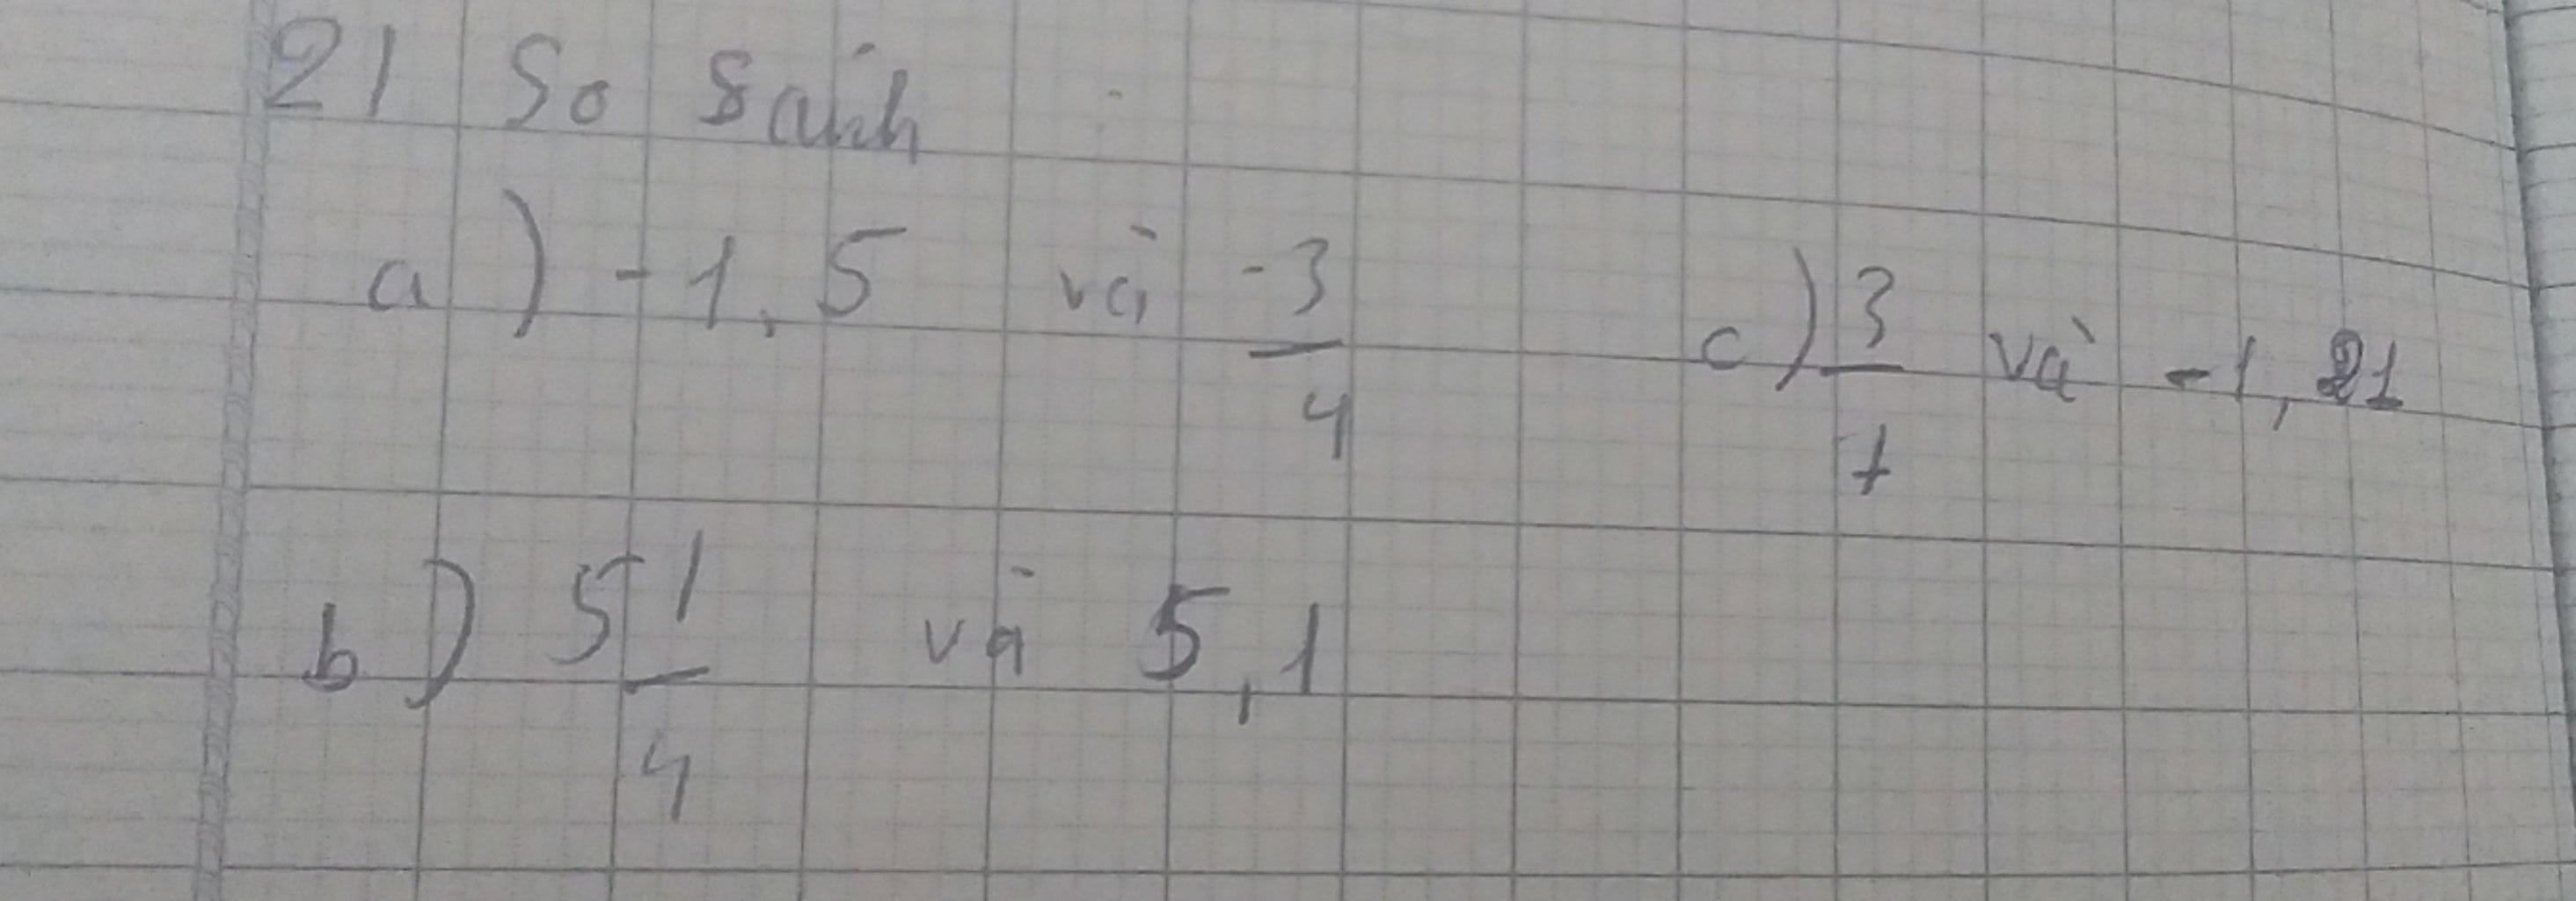 21 So sánh
a) -1,5 và -3/4
c) 3/7 và -1,21
b) 5 1/4 và 5,1